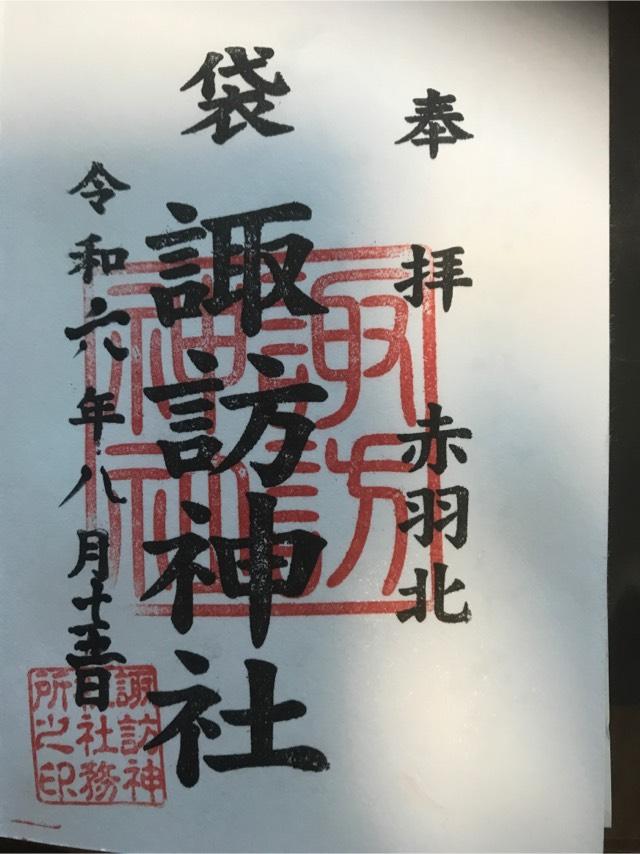 奉拝 赤羽北
袋 諏訪神社
令和六年八月十五日
諏訪神社
諏訪神社社務所之印